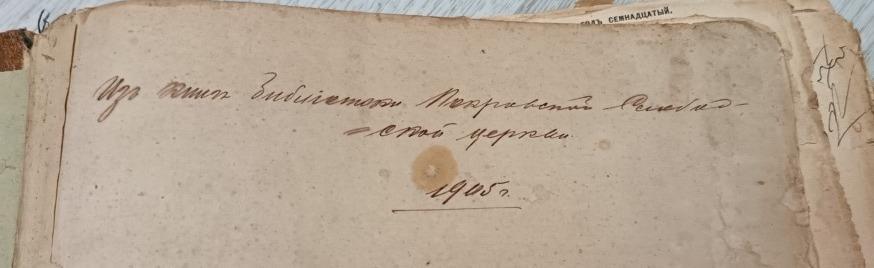 ГОДЪ СЕМНАДЦАТЫЙ.
Изъ книгъ Библіотеки Покровской Слобод-
=ской церкви.
1905 г.